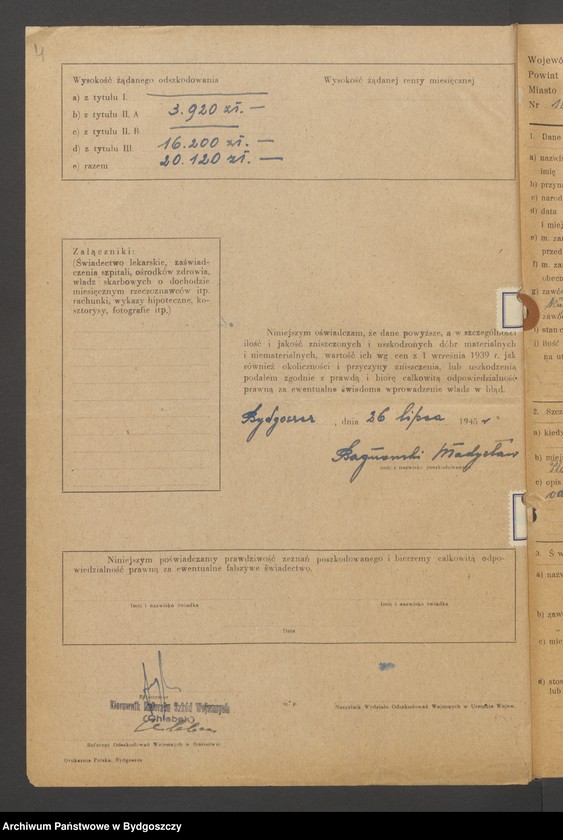 4
Wysokość żądanego odszkodowania
Wysokość żądanej renty miesięcznej
a) z tytułu I.
b) z tytułu II. A 3.920 zł. —
c) z tytułu II. B
d) z tytułu III. 16.200 zł. —
e) razem 20.120 zł. —
Załączniki:
(Świadectwo lekarskie, zaświad-
czenia szpitali, ośrodków zdrowia,
władz skarbowych o dochodzie
miesięcznym rzeczoznawców itp.
rachunki, wykazy hipoteczne, ko-
sztorysy, fotografie itp.)
Niniejszym oświadczam, że dane powyższe, a w szczególności
ilość i jakość zniszczonych i uszkodzonych dóbr materialnych
i niematerialnych, wartość ich wg cen z 1 września 1939 r. jak
również okoliczności i przyczyny zniszczenia, lub uszkodzenia
podałem zgodnie z prawdą i biorę całkowitą odpowiedzialność
prawną za ewentualne świadome wprowadzenie władz w błąd.
Bydgoszcz, dnia 26 lipca 1945 r.
Władysław
imię i nazwisko poszkodowanego
Niniejszym poświadczamy prawdziwość zeznań poszkodowanego i bierzemy całkowitą odpo-
wiedzialność prawną za ewentualne fałszywe świadectwo.
Imię i nazwisko świadka
Imię i nazwisko świadka
Data
Kierownik Referatu Szkód Wojennych
(Chlebek)
Naczelnik Wydziału Odszkodowań Wojennych w Urzędzie Wojew.
Referent Odszkodowań Wojennych w Starostwie
Drukarnia Polska, Bydgoszcz
Wojewó
Powiat
Miasto
Nr
1. Dane
a) nazwi
imię
b) przyn
c) narod
d) data
i miej
e) m. za
przed
f) m. za
obecn
g) zawó
h) zawó
i) stan c
j) ilość
na ut
2. Szcz
a) kiedy
b) miej
c) opis
3. Ś w
a) nazw
b) zaw
c) mie
d) stos
lub
Archiwum Państwowe w Bydgoszczy